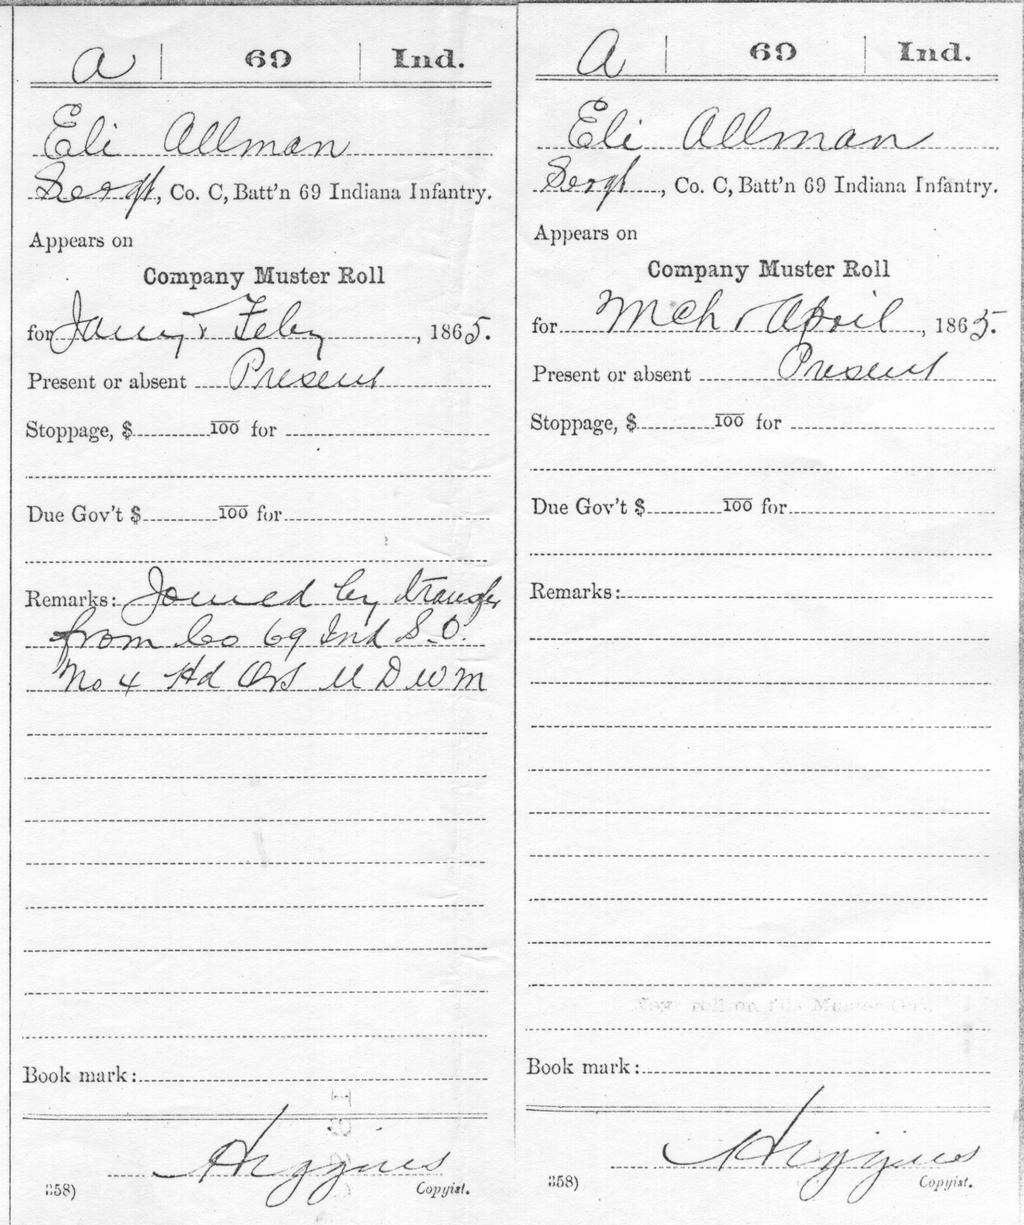 A | 69 | Ind.
Eli Allman
Sergt, Co. C, Batt'n 69 Indiana Infantry.
Appears on
Company Muster Roll
for Jany & Feby, 1865.
Present or absent Present
Stoppage, $ 100 for
Due Gov't $ 100 for
Remarks: Joined by transfer
from Co 69 Ind S.O.
No 4 Hd Qrs U D W M
Book mark:
Higgins
(358) Copyist.
A | 69 | Ind.
Eli Allman
Sergt, Co. C, Batt'n 69 Indiana Infantry.
Appears on
Company Muster Roll
for Mch & April, 1865.
Present or absent Present
Stoppage, $ 100 for
Due Gov't $ 100 for
Remarks:
Next roll on file Muster Out.
Book mark:
Higgins
(358) Copyist.